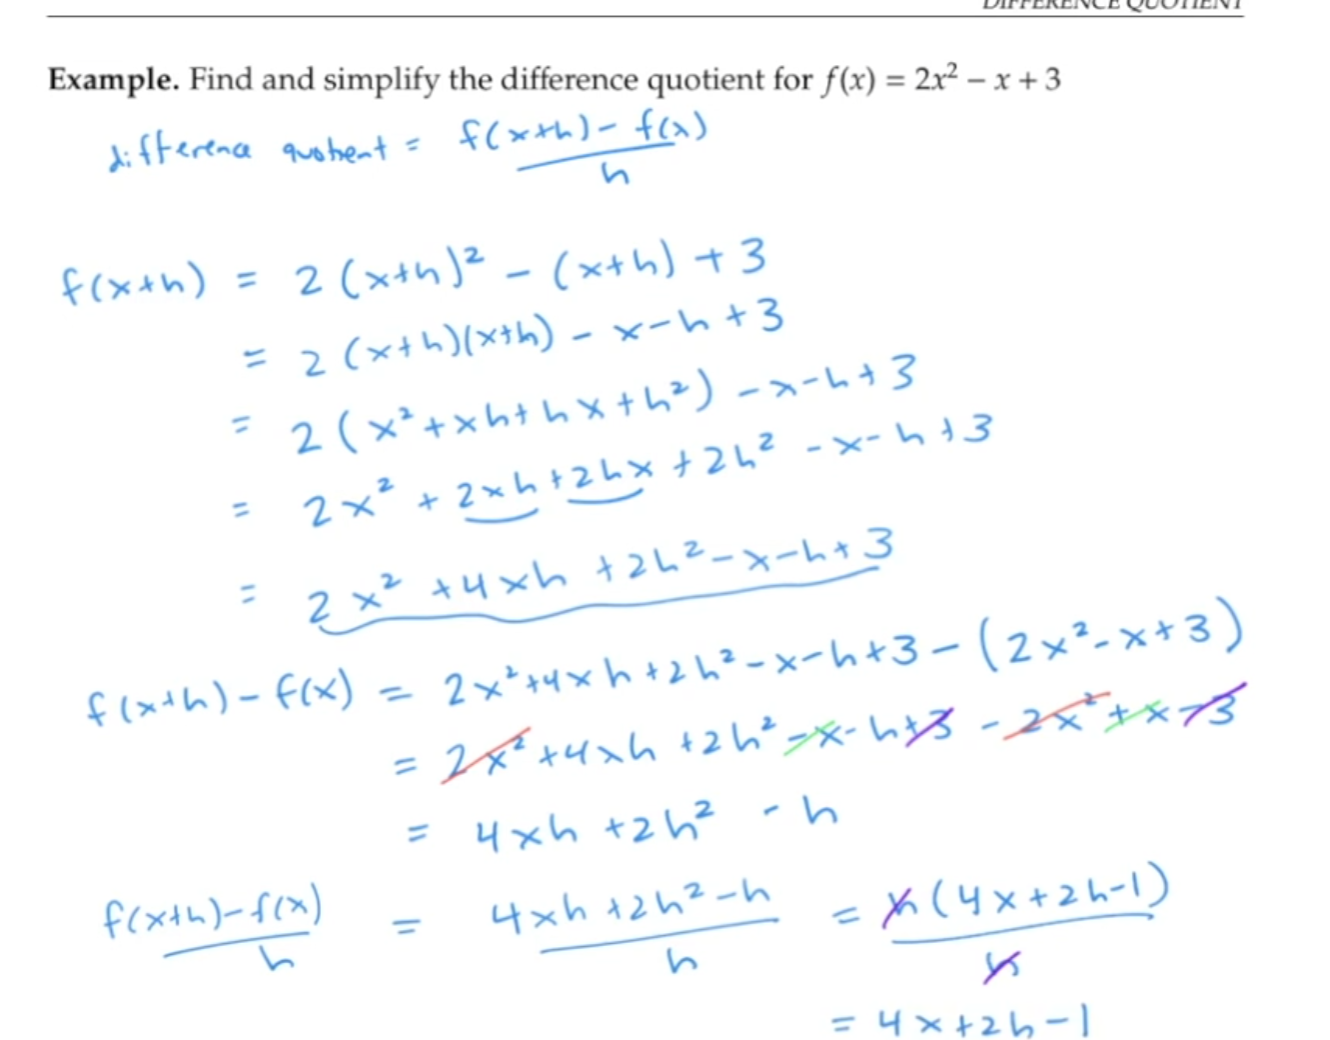 DIFFERENCE QUOTIENT
Example. Find and simplify the difference quotient for f(x) = 2x² − x + 3
difference quotient = f(x+h) - f(x) / h
f(x+h) = 2(x+h)² - (x+h) + 3
= 2(x+h)(x+h) - x-h+3
= 2(x²+xh+hx+h²) -x-h+3
= 2x² + 2xh+2hx+2h² -x-h+3
= 2x² +4xh +2h²-x-h+3
f(x+h)-f(x) = 2x²+4xh+2h²-x-h+3-(2x²-x+3)
= 2x²+4xh+2h²-x-h+3 -2x²+x-3
= 4xh+2h² -h
f(x+h)-f(x) / h = 4xh+2h²-h / h = h(4x+2h-1) / h
= 4x+2h-1